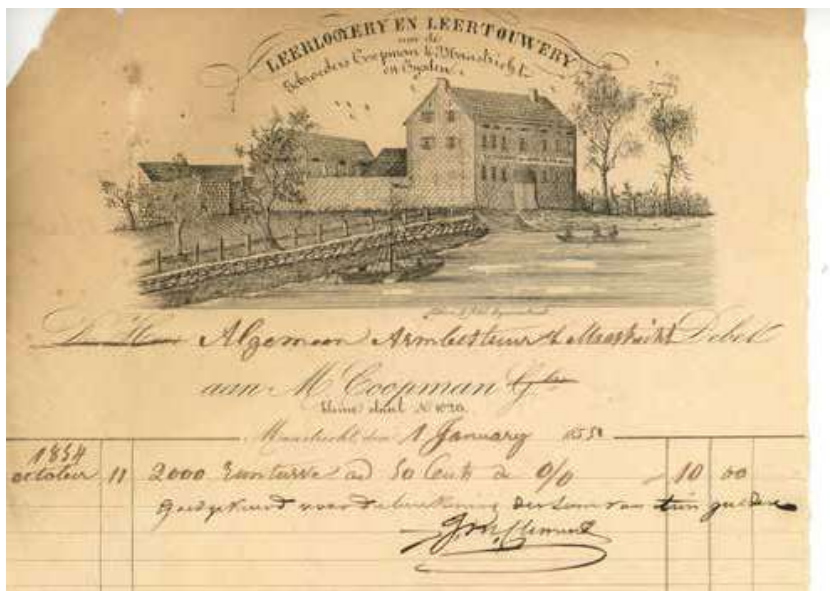 LEERLOOYERY EN LEERTOUWERY
van de
Gebroeders Coopman te Maastricht
en Eysden.
De Heer Algemeen Armbestuur te Maastricht Debet
aan M Coopman Gbr
kleine staat No 1020.
Maastricht den 1 January 185
1854
october 11 2000 Runturve ad 50 Cents de 0/0 10 00
Goedgekeurd voor de som van tien gulden